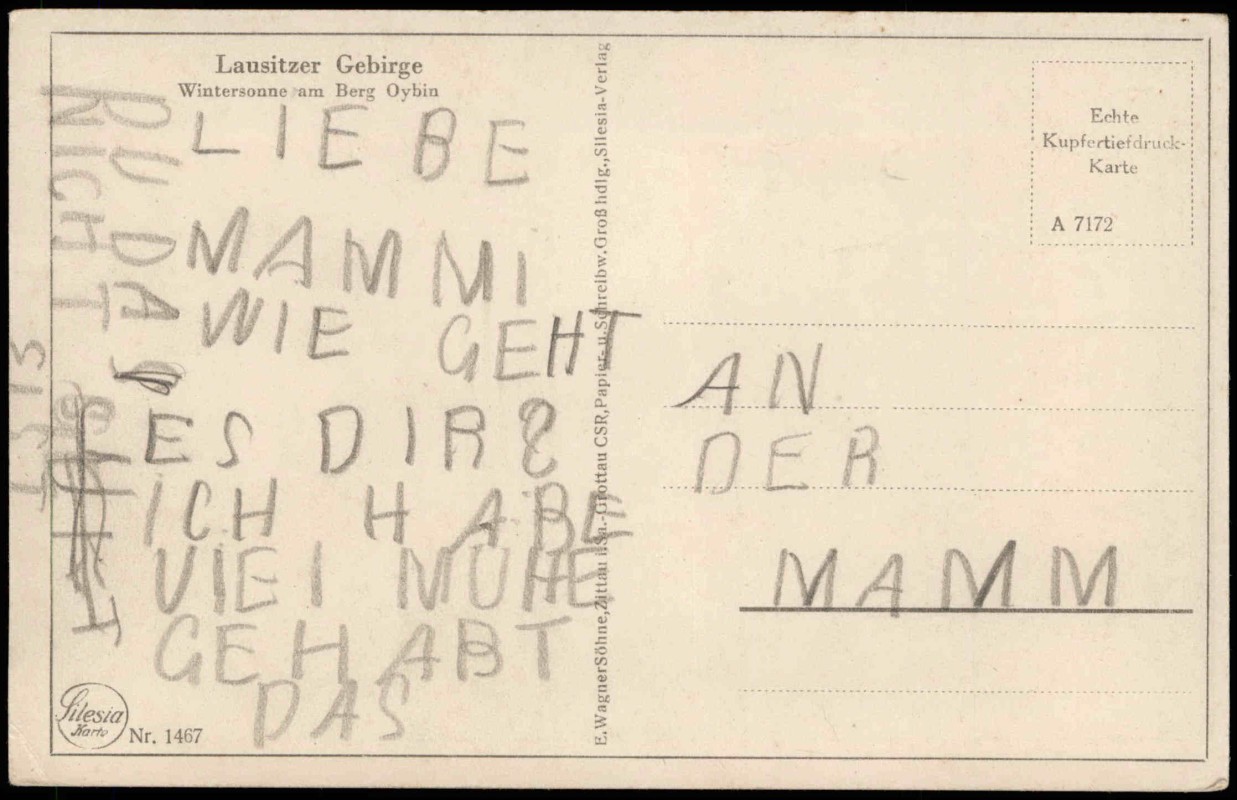 Lausitzer Gebirge
Wintersonne am Berg Oybin
LIEBE
MAMMI
WIE GEHT
ES DIR?
ICH HABE
VIEl MÜHE
GEHABT
DAS
DU DA
NICHT
IST
Silesia
Karte
Nr. 1467
E. Wagner Söhne, Zittau i. Sa.-Grottau CSR, Papier- u. Schreibw. Großhdlg., Silesia-Verlag
Echte
Kupfertiefdruck-
Karte
A 7172
AN
DER
MAMM